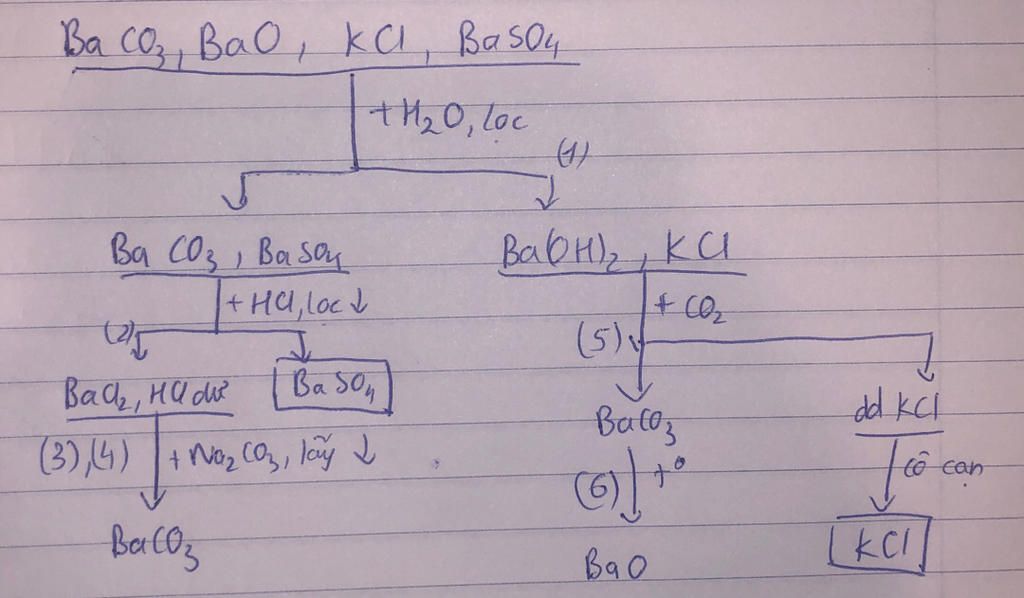 BaCO3, BaO, KCl, BaSO4
+ H2O, lọc
(1)
BaCO3, BaSO4
Ba(OH)2, KCl
+ HCl, lọc ↓
+ CO2
(2)
(5)
BaCl2, HCl dư
BaSO4
BaCO3
dd KCl
(3), (4)
+ Na2CO3, lấy ↓
(6)
t°
cô cạn
BaCO3
BaO
KCl